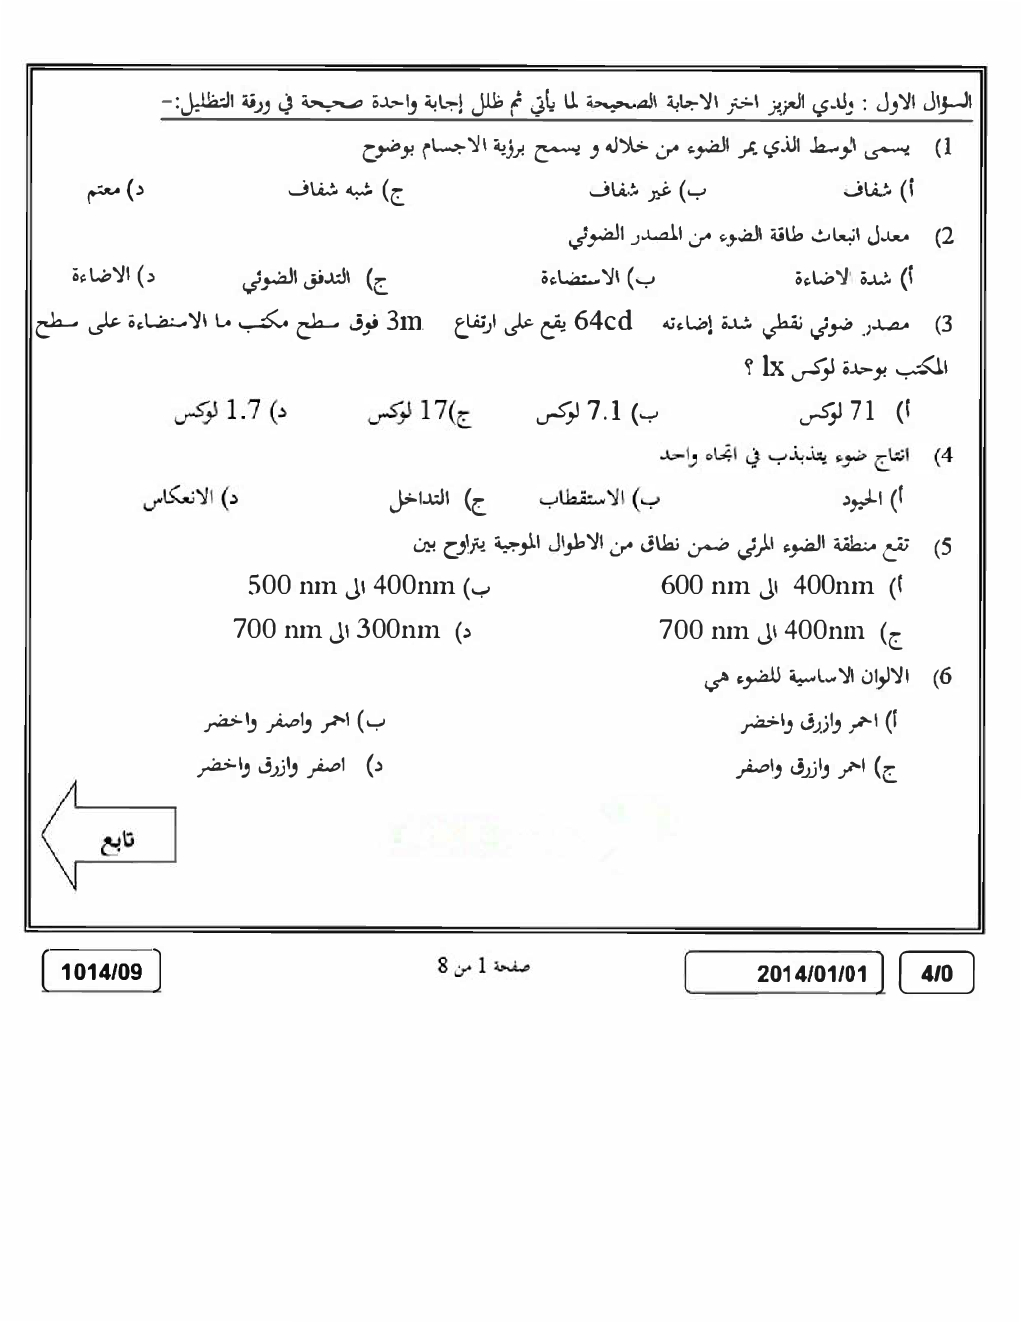 السؤال الاول : ولدي العزيز اختر الاجابة الصحيحة لما يأتي ثم ظلل إجابة واحدة صحيحة في ورقة التظليل:-
1) يسمى الوسط الذي يمر الضوء من خلاله و يسمح برؤية الاجسام بوضوح
أ) شفاف ب) غير شفاف ج) شبه شفاف د) معتم
2) معدل انبعاث طاقة الضوء من المصدر الضوئي
أ) شدة الاضاءة ب) الاستضاءة ج) التدفق الضوئي د) الاضاءة
3) مصدر ضوئي نقطي شدة إضاءته 64cd يقع على ارتفاع 3m فوق سطح مكتب ما الاستضاءة على سطح
المكتب بوحدة لوكس lx ؟
أ) 71 لوكس ب) 7.1 لوكس ج)17 لوكس د) 1.7 لوكس
4) انتاج ضوء يتذبذب في اتجاه واحد
أ) الحيود ب) الاستقطاب ج) التداخل د) الانعكاس
5) تقع منطقة الضوء المرئي ضمن نطاق من الاطوال الموجية يتراوح بين
أ) 400nm الى 600 nm ب) 400nm الى 500 nm
ج) 400nm الى 700 nm د) 300nm الى 700 nm
6) الالوان الاساسية للضوء هي
أ) احمر وازرق واخضر ب) احمر واصفر واخضر
ج) احمر وازرق واصفر د) اصفر وازرق واخضر
تابع
4/0 2014/01/01 صفحة 1 من 8 1014/09